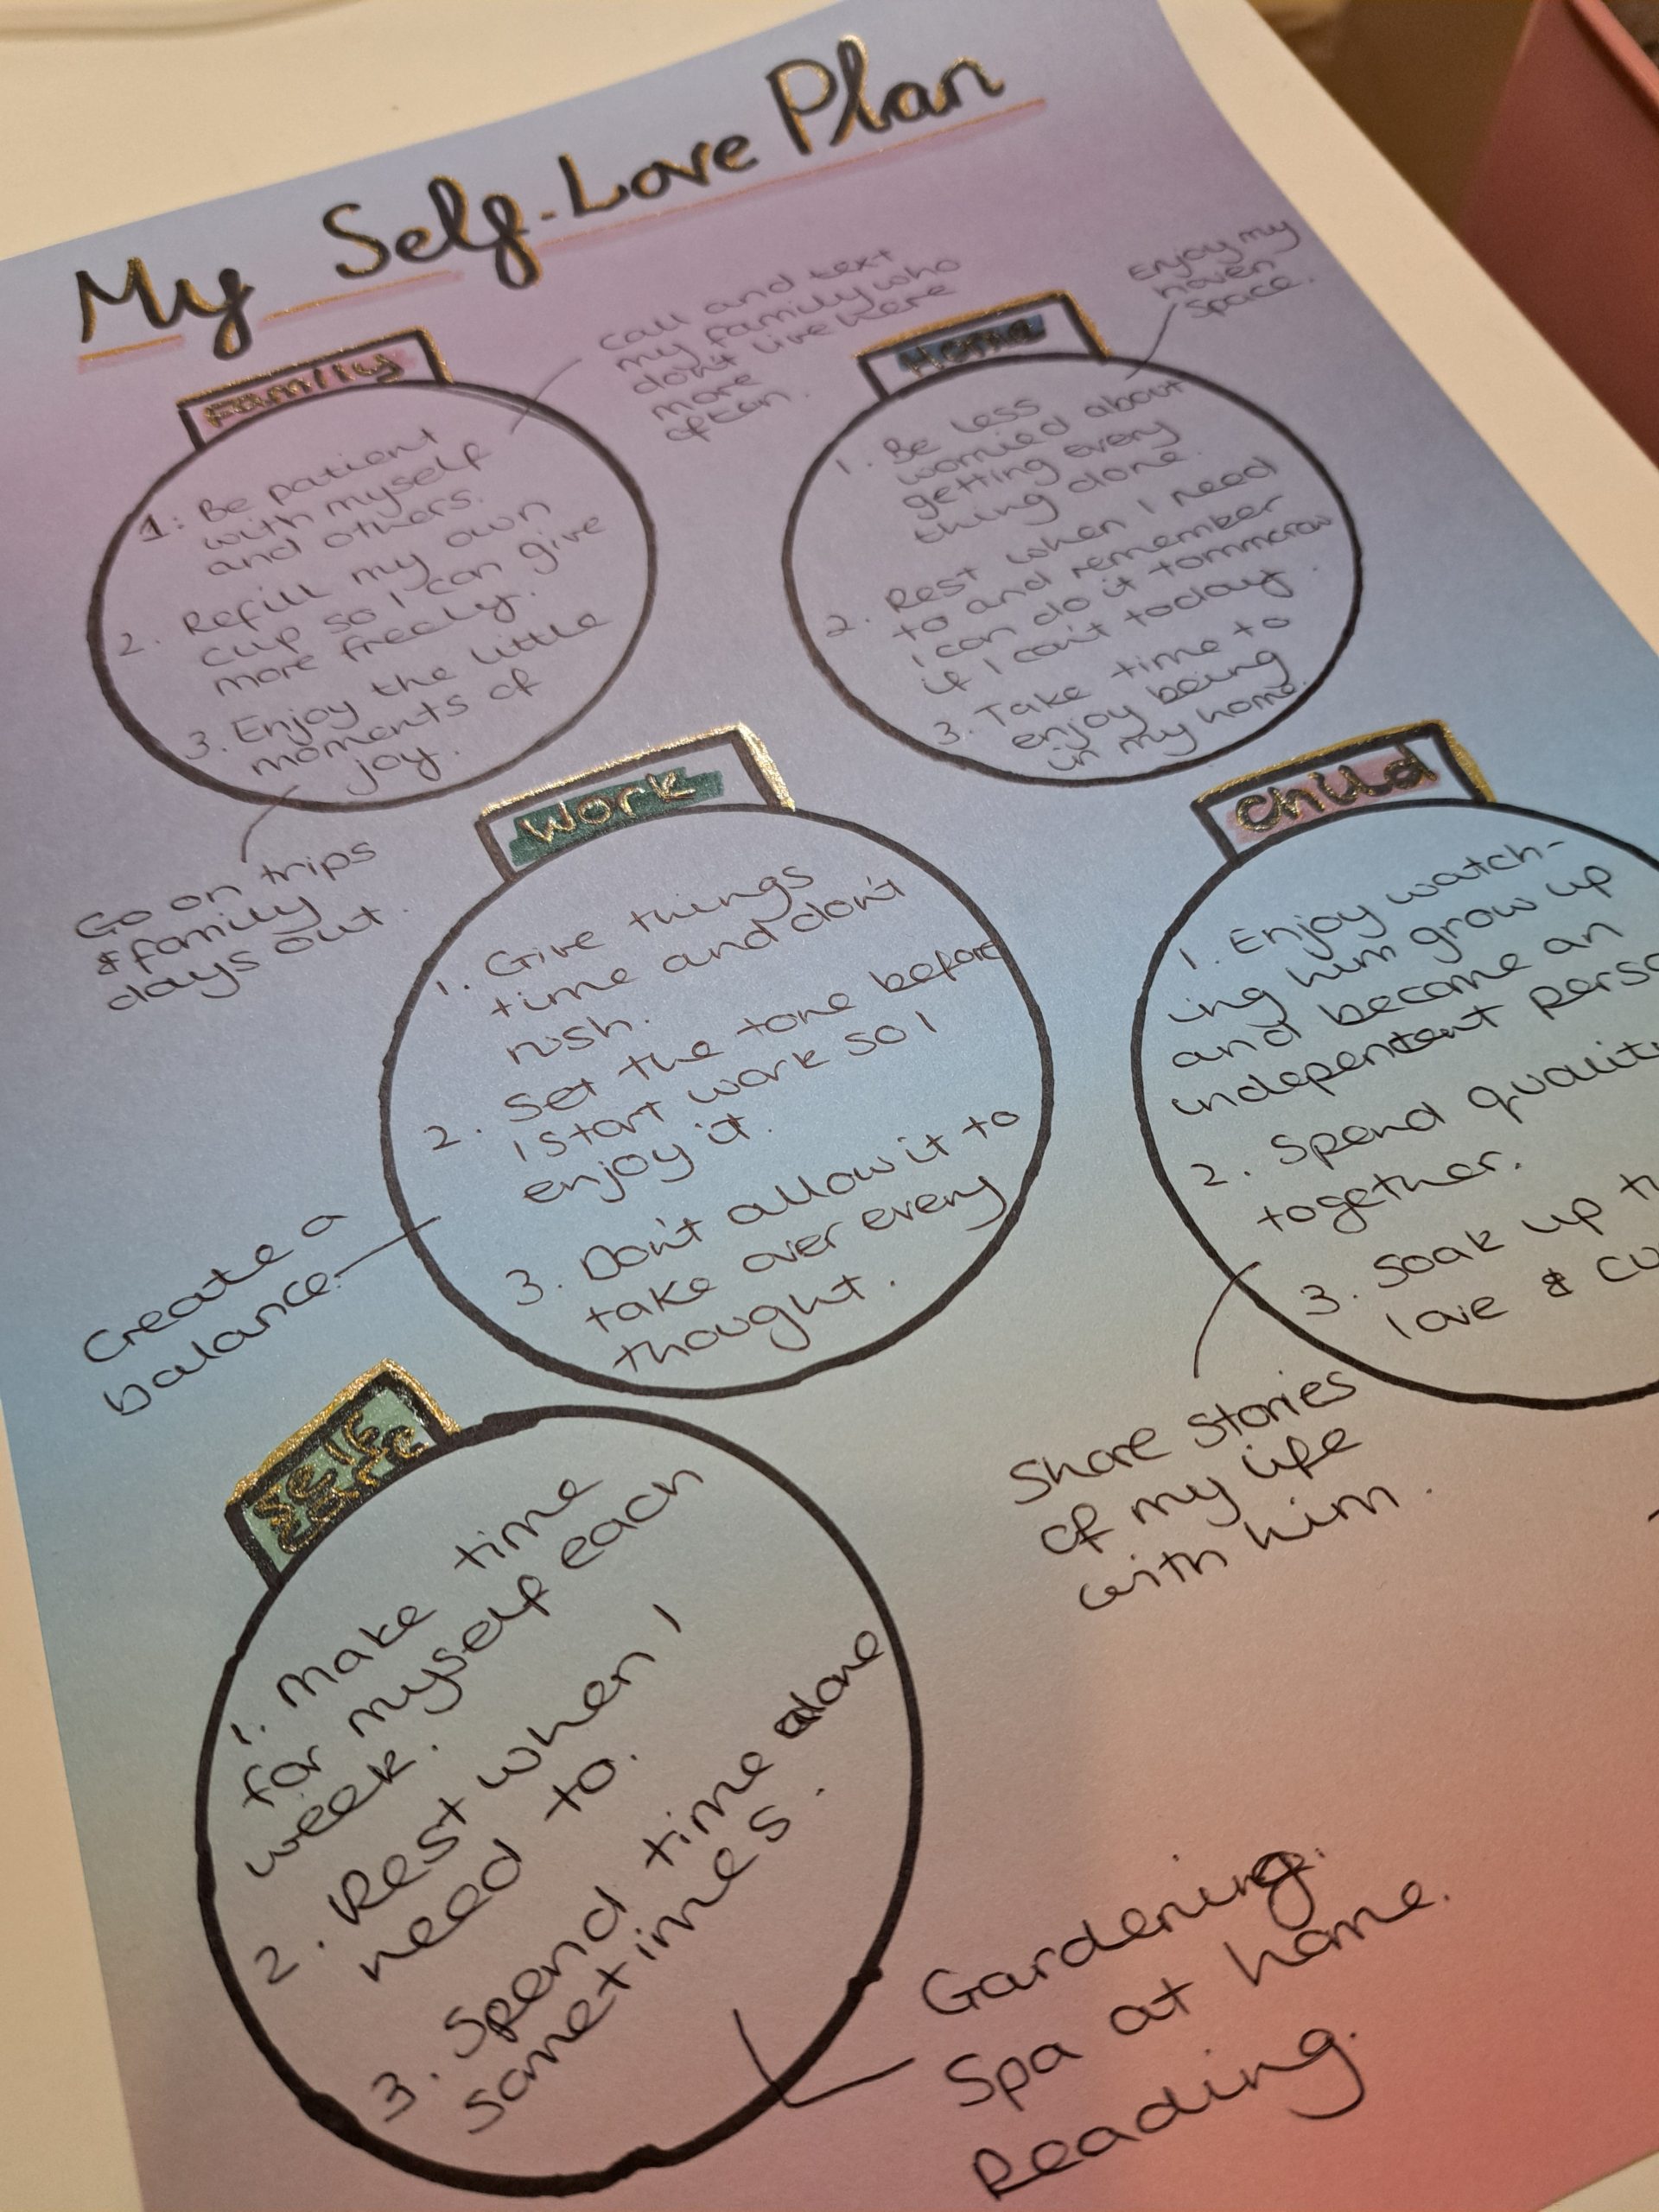 My Self-Love Plan
Family
1: Be patient
with myself
and others.
2. Refill my own
cup so I can give
more freely.
3. Enjoy the little
moments of
joy.
Call and text
my family who
don't live here
more
often.
Go on trips
& family
days out.
Home
1. Be less
worried about
getting every
thing done.
2. Rest when I need
to and remember
I can do it tommorow
if I can't today.
3. Take time to
enjoy being
in my home.
Enjoy my
haven
space.
Work
1. Give things
time and don't
rush.
2. Set the tone before
I start work so I
enjoy it.
3. Don't allow it to
take over every
thought.
Create a
balance.
Child
1. Enjoy watch-
ing him grow up
and become an
independent
2. Spend
together.
3. Soak up
love &
Share stories
of my life
with him.
Self
Care
1. Make time
for myself each
week.
2. Rest when I
need to.
3. Spend time alone
sometimes.
Gardening.
Spa at home.
Reading.